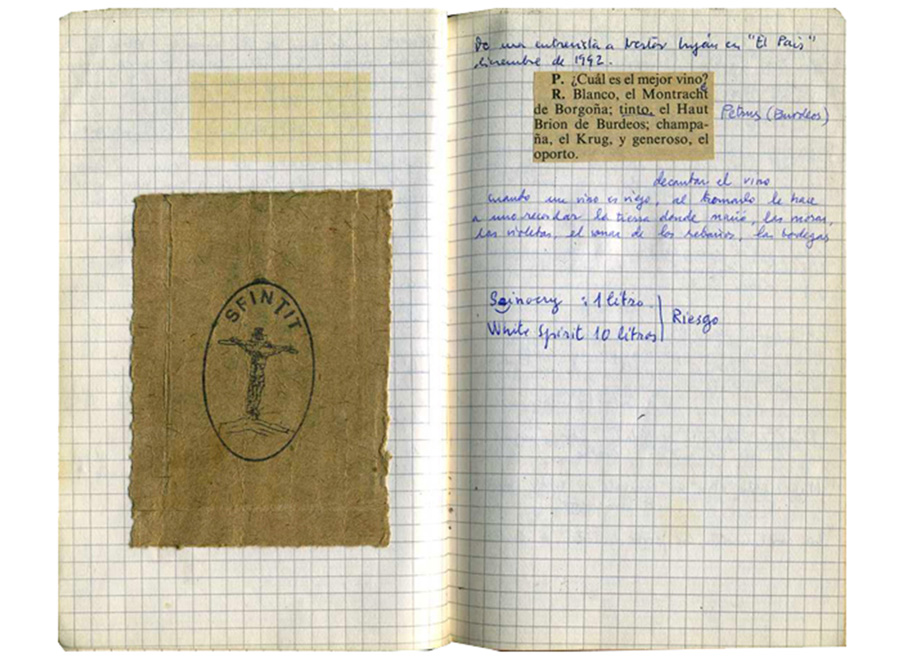 SFINTIT
De una entrevista a Nestor Luján en "El País"
diciembre de 1992.
P. ¿Cuál es el mejor vino?
R. Blanco, el Montrachet
de Borgoña; tinto, el Haut
Brion de Burdeos; champa-
ña, el Krug, y generoso, el
oporto.
Petrus (Burdeos)
decantar el vino
cuando un vino es viejo, al tomarlo le hace
a uno recordar la tierra donde nació, las moras,
las violetas, el de los rebaños, las bodegas
: 1 litro
White Spirit 10 litros
Riesgo